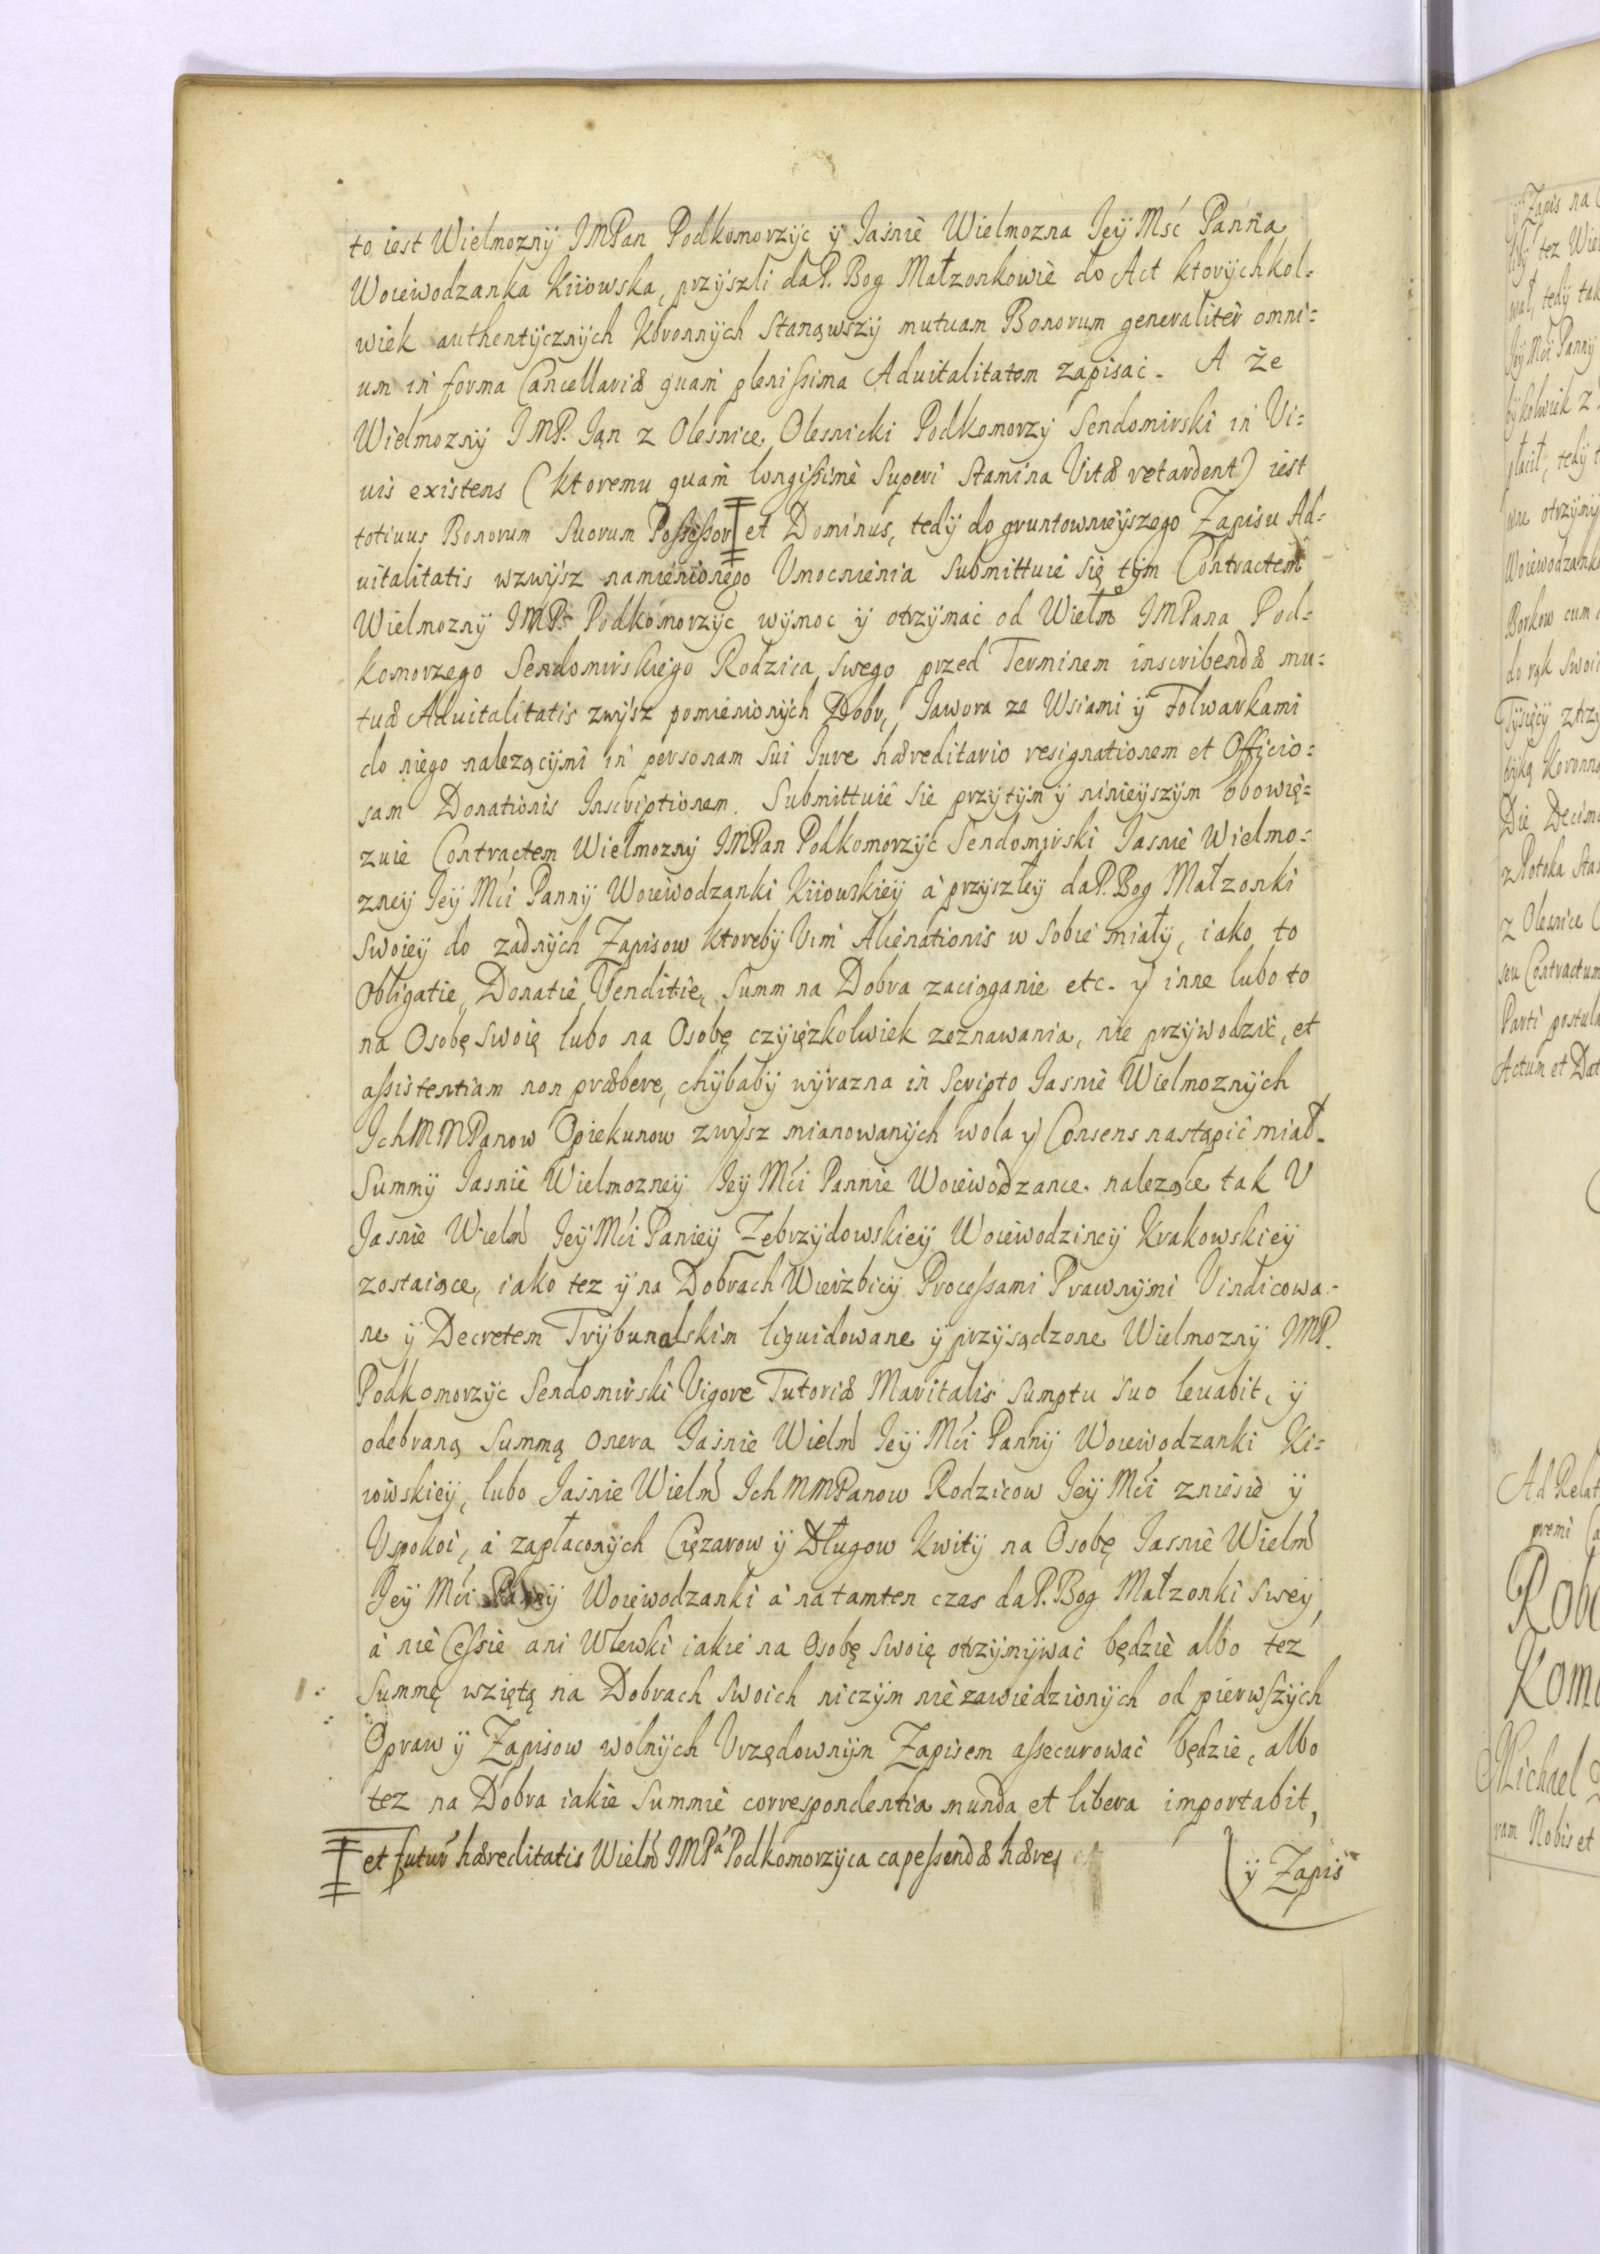 to iest Wielmozny JMPan Podkomorzyc y Jasnie Wielmozna Jey Mść Panna
Woiewodzanka Kiiowska, przyszli da P. Bog Małzonkowie do Act ktorychkol=
wiek authentycznych Koronnych Stanąwszy mutuam Bonorum generaliter omni=
um in forma Cancellariæ quam plenissima Aduitalitatem zapisac. A że
Wielmozny JMP. Jan z Olesnice Olesnicki Podkomorzy Sendomirski in Vi=
uis existens (ktoremu quam longissime Superi Stamina Vitæ retardent) iest
totiuus Bonorum Suorum Possessor et Dominus, tedy do gruntownieyszego Zapisu Ad=
uitalitatis wzwysz namienionego Vmocnienia submittuie się tym Contractem
Wielmozny JMP. Podkomorzyc wymoc y otrzymac od Wielm JMPana Pod=
komorzego Sendomirskiego Rodzica swego przed Terminem inscribendæ mu=
tuæ Aduitalitatis zwysz pomienionych Dobr, Jawora ze Wsiami y Folwarkami
do niego nalezącymi in personam sui Jure hæreditario resignationem et Officio=
sam Donationis Inscriptionem. Submittuie sie przytym y ninieyszym obowię=
zuie Contractem Wielmozny JMPan Podkomorzyc Sendomirski Jasnie Wielmo=
zney Jey Mści Panny Woiewodzanki Kiiowskiey a przyszłey da P. Bog Małzonki
swoiey do zadnych Zapisow ktoreby Vim Alienationis w sobie miały, iako to
Obligatie, Donatie, Venditie, Summ na Dobra zaciąganie etc. y inne lubo to
na Osobę swoię lubo na Osobę czyięzkolwiek zeznawania, nie przywodzić, et
assistentiam non præbere, chybaby wyrazna in Scripto Jasnie Wielmoznych
Ich MMPanow Opiekunow zwysz mianowanych wola y Consens nastąpić miał.
Summy Jasnie Wielmozney Jey Mści Pannie Woiewodzance nalezące tak V
Jasnie Wielm Jey Mści Paniey Zebrzydowskiey Woiewodziney Krakowskiey
zostaiące, iako tez y na Dobrach Wierzbicy Processami Prawnymi Vindicowa-
ne y Decretem Trybunalskim liquidowane y przysądzone Wielmozny JMP.
Podkomorzyc Sendomirski Vigore Tutoriæ Maritalis sumptu suo leuabit, y
odebraną Summą onera Jasnie Wielm Jey Mści Panny Woiewodzanki Ki=
iowskiey, lubo Jasnie Wielm Ich MMPanow Rodzicow Jey Mści zniesie y
Vspokoi, a zapłaconych Cięzarow y Długow Kwity na Osobę Jasnie Wielm
Jey Mści Panny Woiewodzanki a na tamten czas da P. Bog Małzonki swey,
a nie Cessie ani Wlewki iakie na Osobę swoię otrzymywac będzie albo tez
Summę wziętą na Dobrach swoich niczym nie zawiedzionych od pierwszych
Opraw y Zapisow wolnych Vrzędownym Zapisem assecurować będzie, albo
tez na Dobra iakie Summie correspondentia munda et libera importabit,
et futur hæreditatis Wielm JMPa Podkomorzyca capessendæ hæres
y Zapis